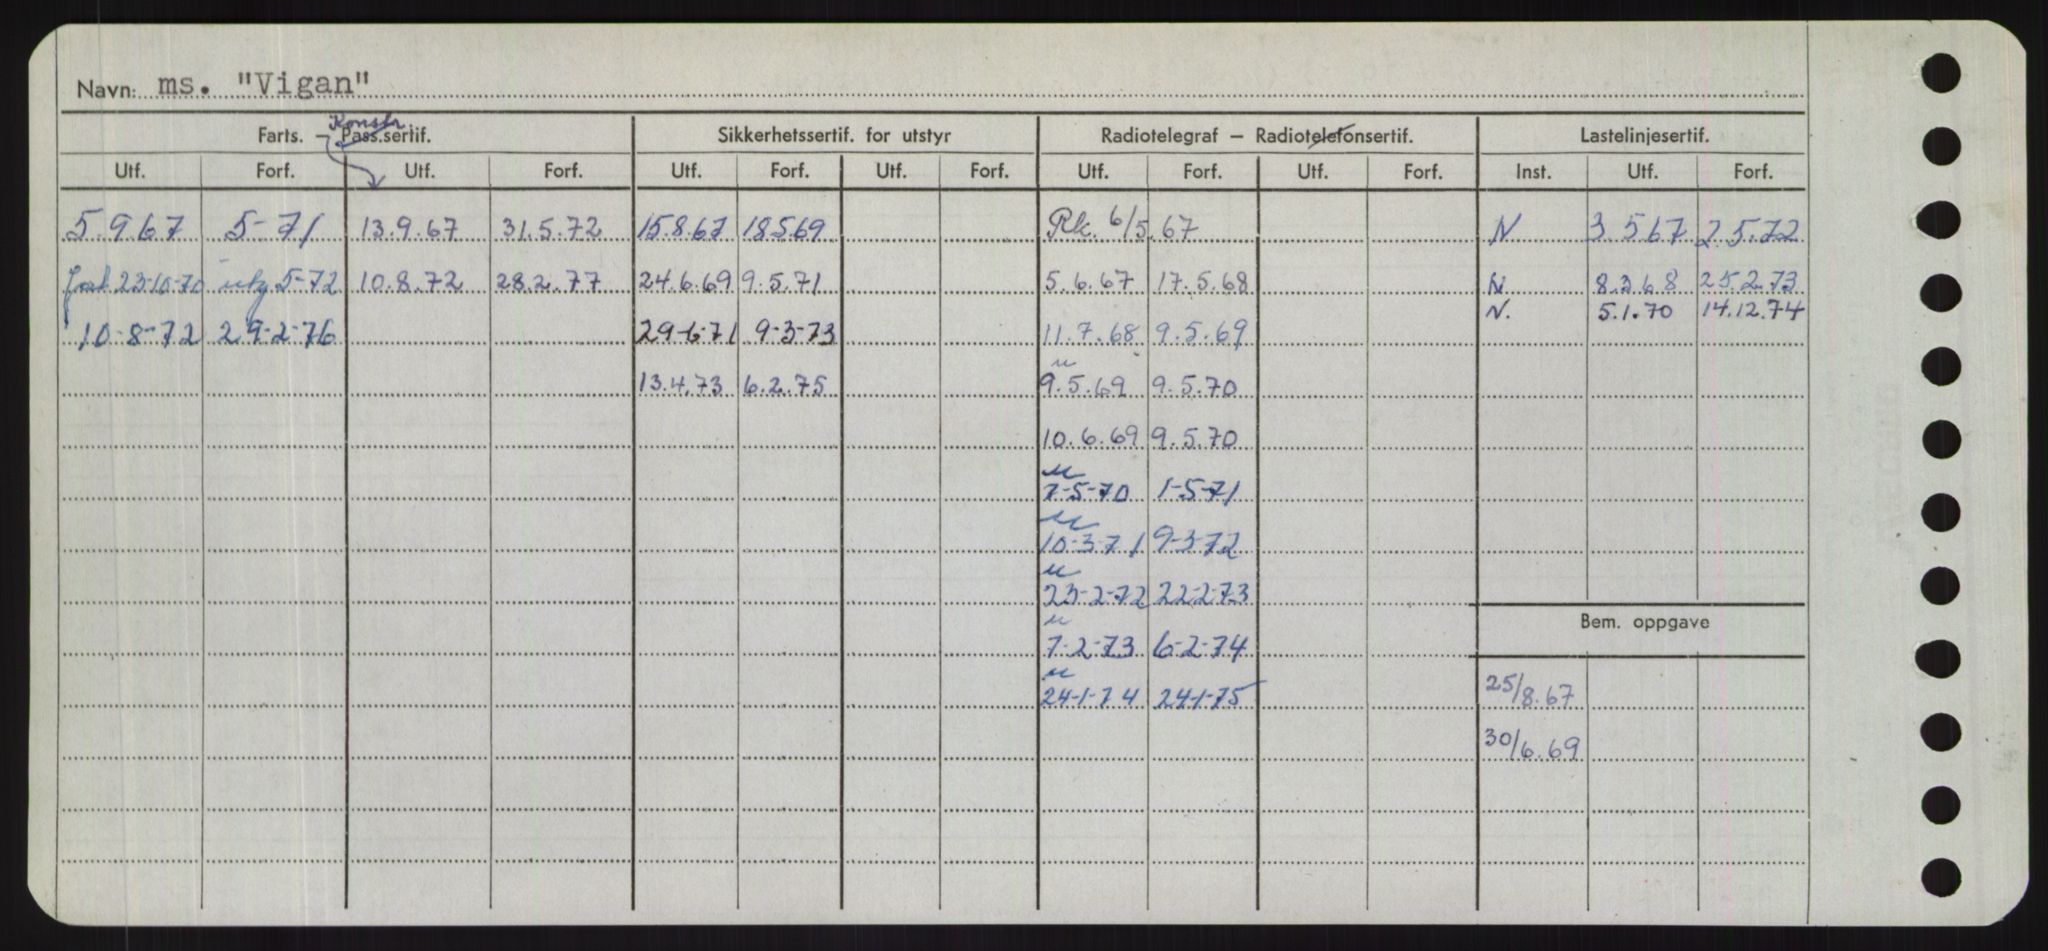 Navn: ms. "Vigan"
Konstr
Farts. — Pass.sertif. Sikkerhetssertif. for utstyr Radiotelegraf — Radiotelefonsertif. Lastelinjesertif.
Utf. Forf. Utf. Forf. Utf. Forf. Utf. Forf. Utf. Forf. Utf. Forf. Inst. Utf. Forf.
5.9.67 5-71 13.9.67 31.5.72 15.8.67 18.5.69 Rk. 6/5.67 N 3.5.67 2.5.72
23-10-70 5-72 10.8.72 28.2.77 24.6.69 9.5.71 5.6.67 17.5.68 N 8.3.68 25.2.73
N. 5.1.70 14.12.74
10-8-72 29-2-76 29-6-71 9-3-73 11.7.68 9.5.69
u
13.4.73 6.2.75 9.5.69 9.5.70
10.6.69 9.5.70
u
7-5-70 1-5-71
u
10-3-71 9-3-72
u
23-2-72 22-2-73
Bem. oppgave
u
7-2-73 6-2-74
u
24-1-74 24-1-75 25/8.67
30/6.69